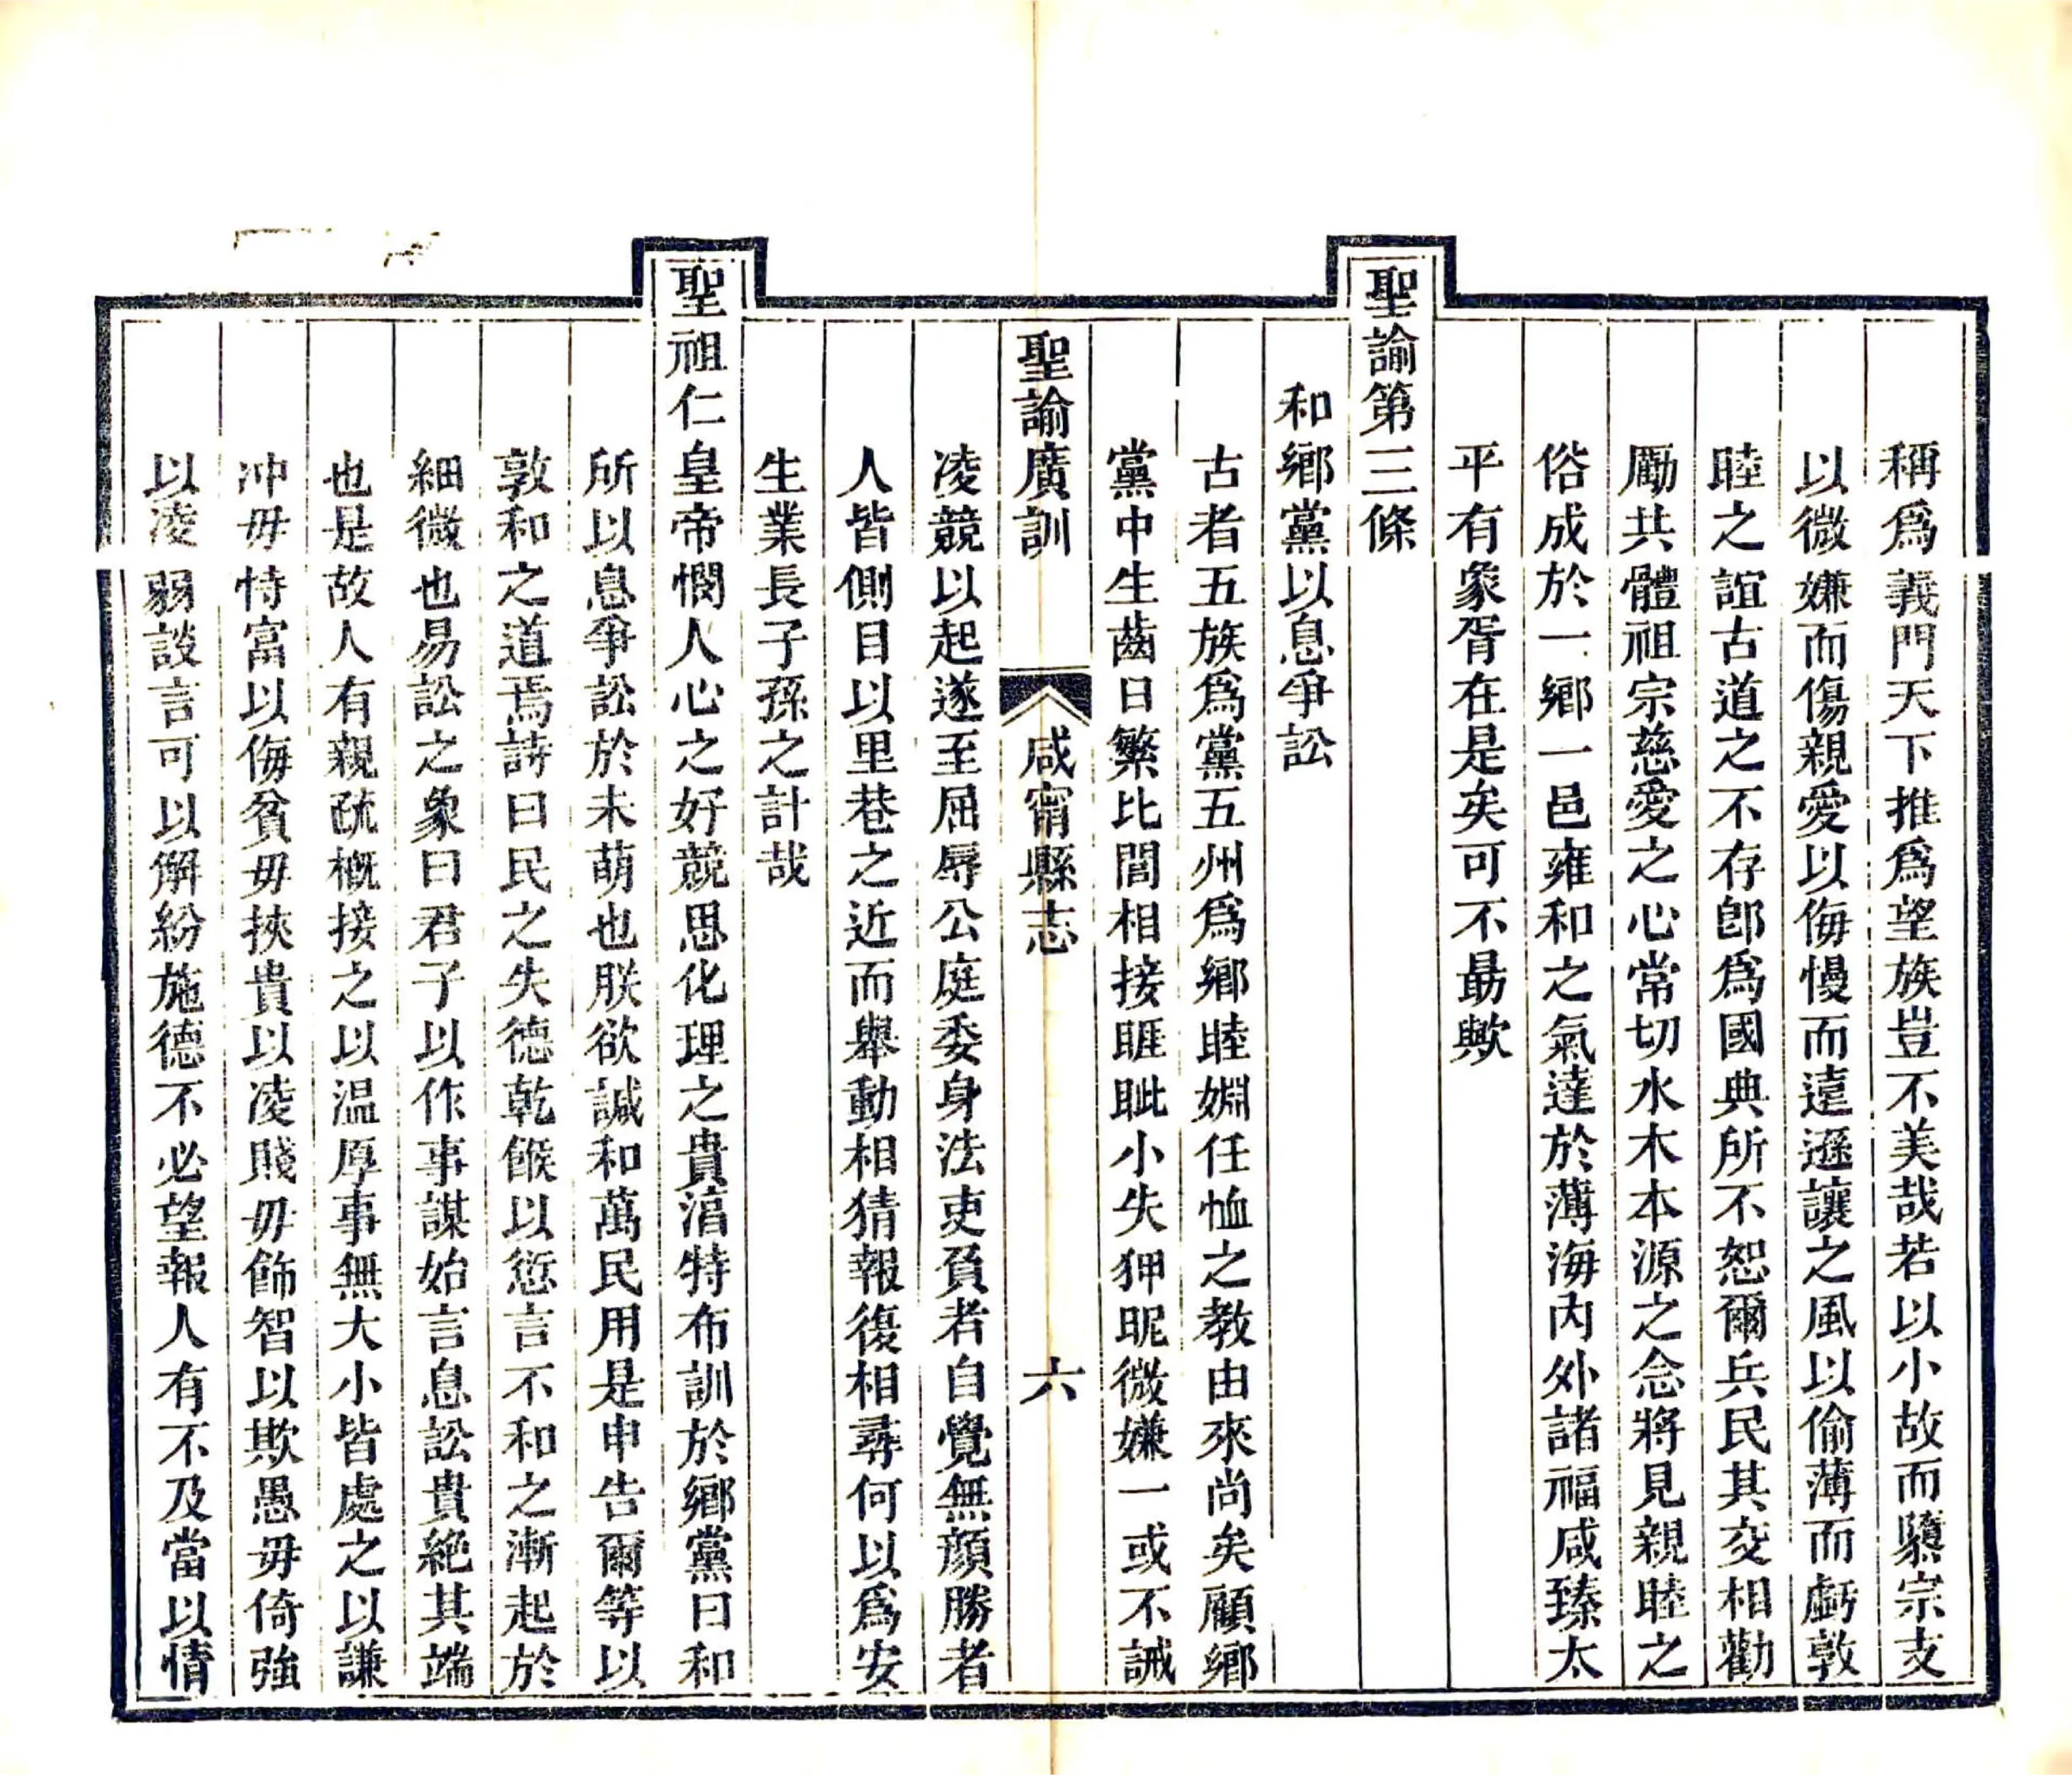 稱爲義門天下推爲望族豈不美哉若以小故而隳宗支
以微嫌而傷親愛以侮慢而違遜讓之風以偷薄而虧敦
睦之誼古道之不存卽爲國典所不恕爾兵民其交相勸
勵共體祖宗慈愛之心常切水木本源之念將見親睦之
俗成於一鄉一邑雍和之氣達於薄海內外諸福咸臻太
平有象胥在是矣可不勗歟
聖諭第三條
和鄉黨以息爭訟
古者五族爲黨五州爲鄉睦婣任恤之教由來尚矣顧鄉
黨中生齒日繁比閭相接睚眦小失狎昵微嫌一或不誡
聖諭廣訓 咸甯縣志 六
凌競以起遂至屈辱公庭委身法吏負者自覺無顏勝者
人皆側目以里巷之近而舉動相猜報復相尋何以爲安
生業長子孫之計哉
聖祖仁皇帝憫人心之好競思化理之貴湻特布訓於鄉黨曰和
所以息爭訟於未萌也朕欲諴和萬民用是申告爾等以
敦和之道焉詩曰民之失德乾餱以愆言不和之漸起於
細微也易訟之象曰君子以作事謀始言息訟貴絶其端
也是故人有親疏槪接之以温厚事無大小皆處之以謙
冲毋恃富以侮貧毋挾貴以凌賤毋飾智以欺愚毋倚強
以凌弱談言可以解紛施德不必望報人有不及當以情